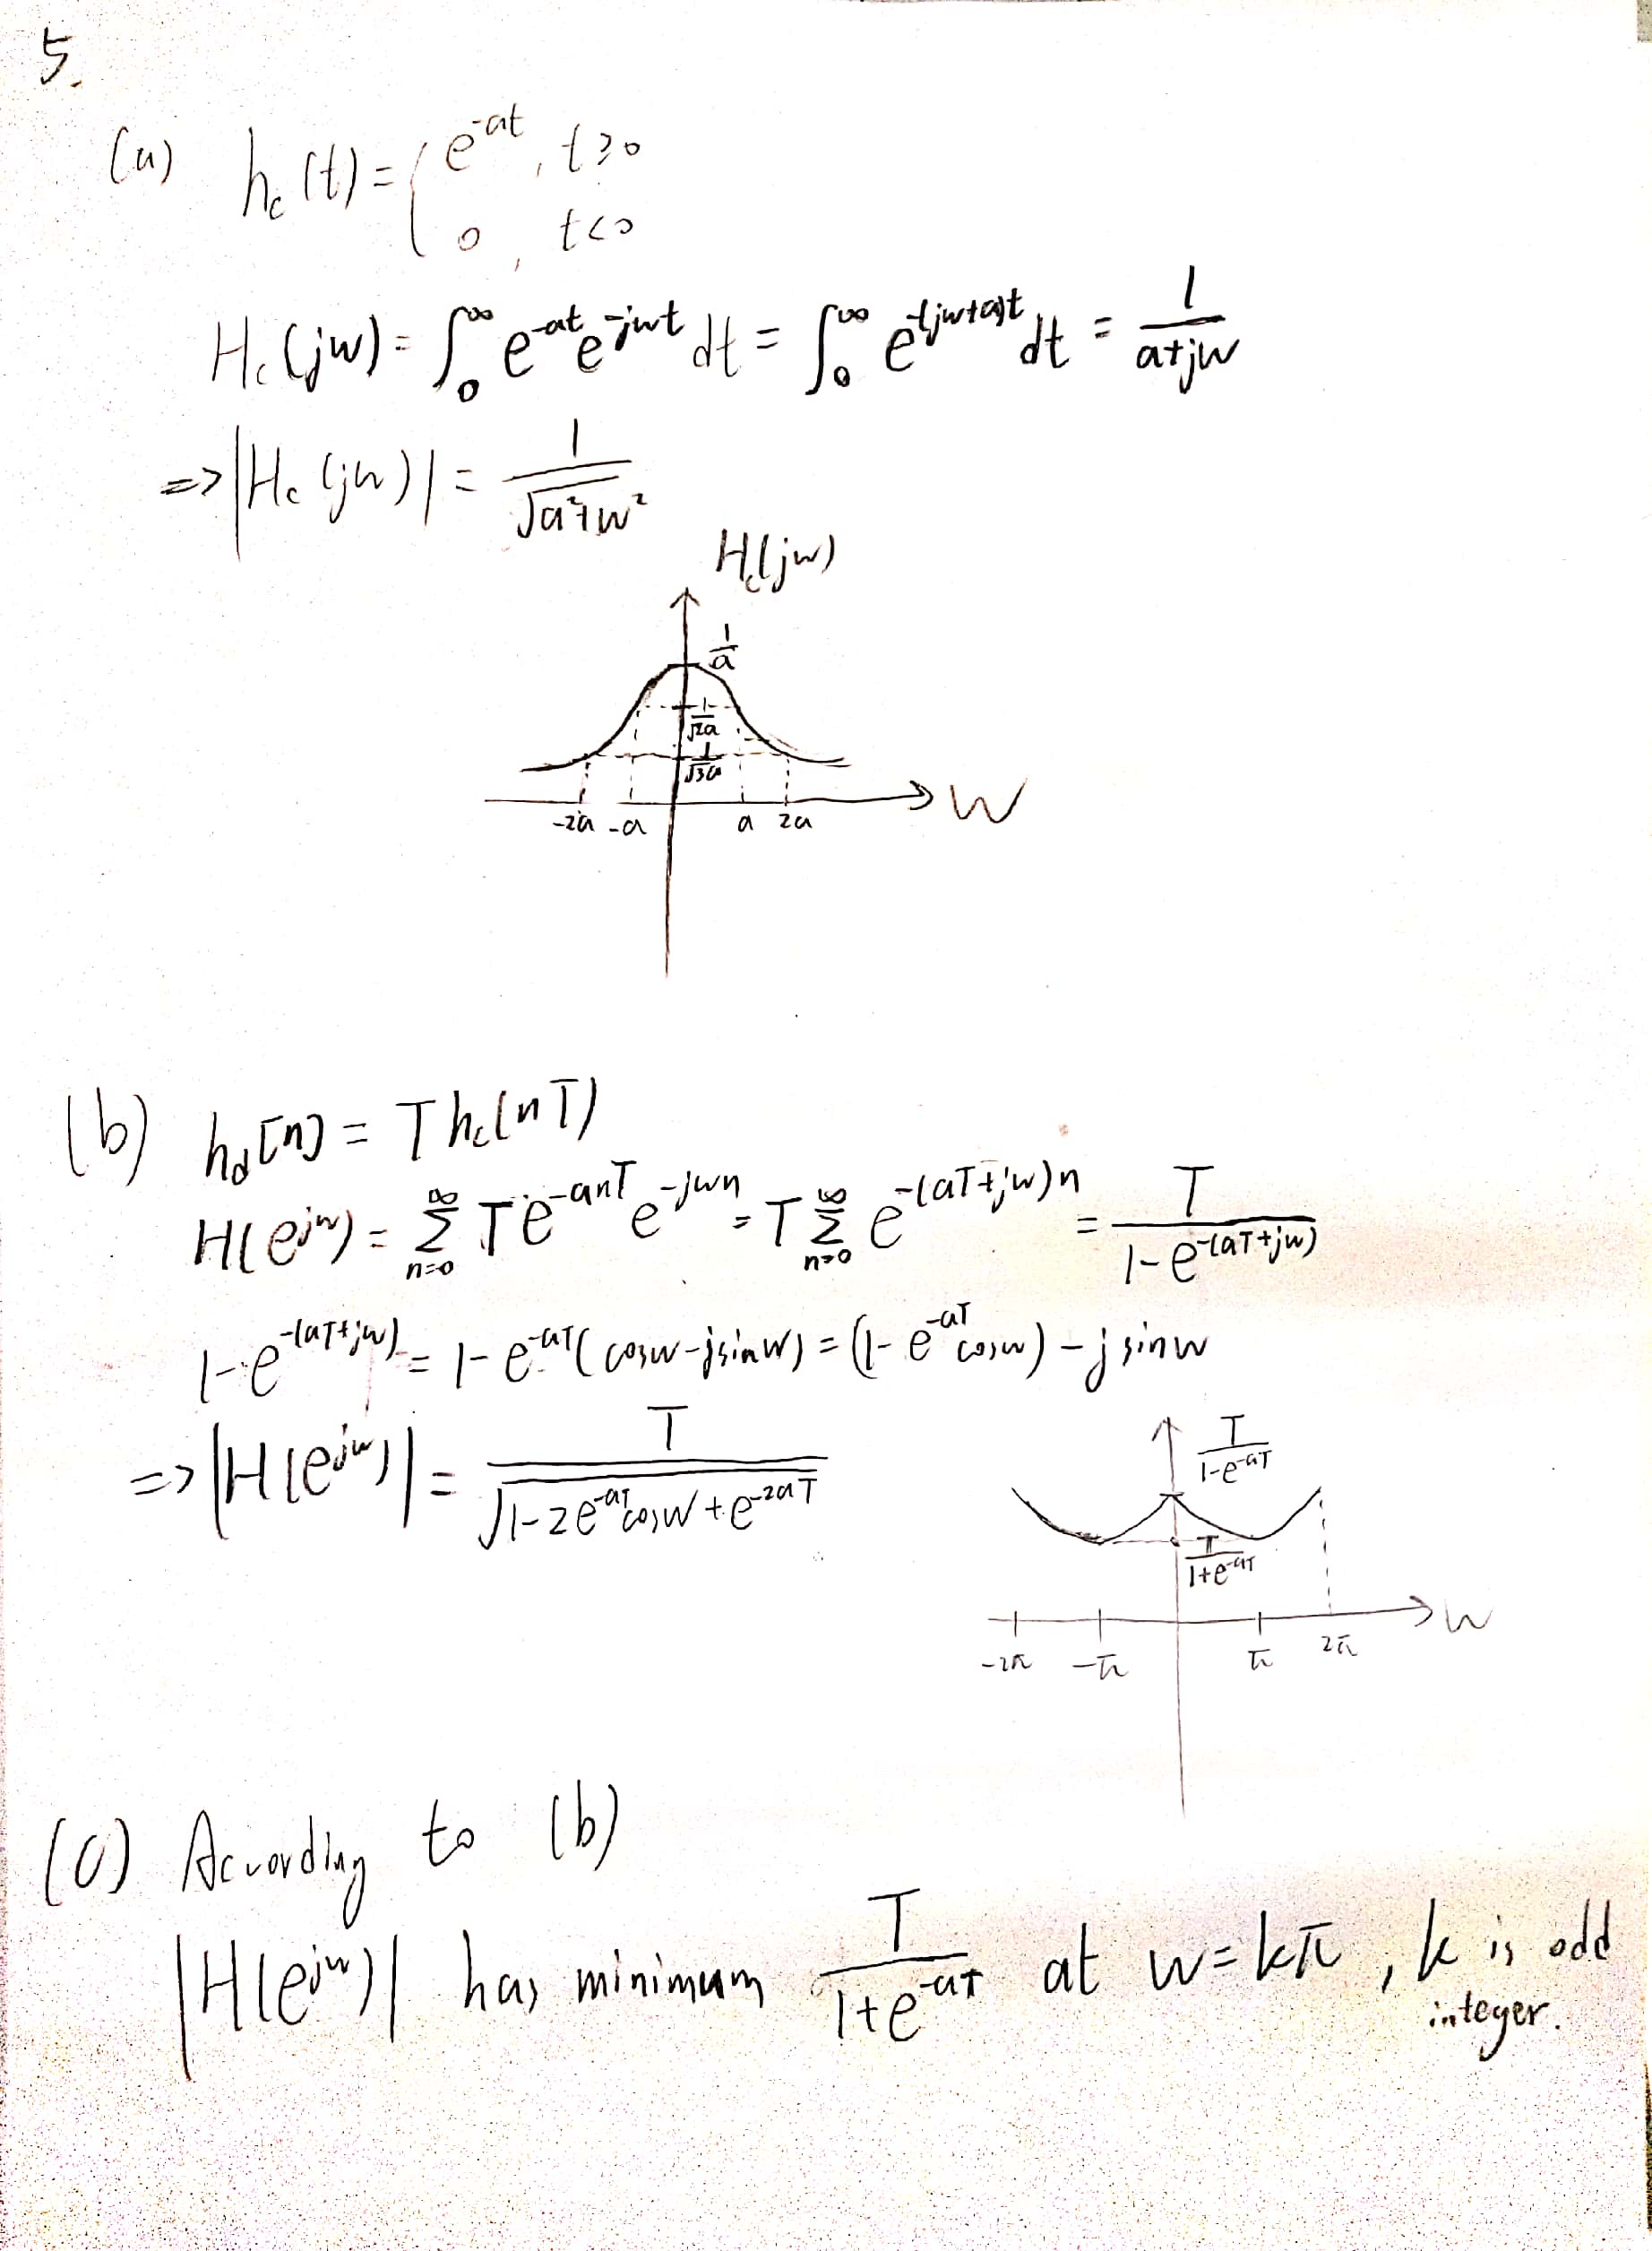 5.
(a) h_c(t) = { e^{-at}, t≥0
0, t<0
H_c(jw) = ∫_0^∞ e^{-at} e^{-jwt} dt = ∫_0^∞ e^{-(jw+a)t} dt = 1/(a+jw)
=> |H_c(jw)| = 1/√(a²+w²)
H_c(jw)
1/a
1/√2a
1/√3a
-2a -a a 2a W
(b) h_d[n] = T h_c(nT)
H(e^{jw}) = Σ_{n=0}^∞ T e^{-anT} e^{-jwn} = T Σ_{n=0}^∞ e^{-(aT+jw)n} = T/(1-e^{-(aT+jw)})
1-e^{-(aT+jw)} = 1-e^{-aT}(cosw-jsinw) = (1-e^{-aT}cosw) - jsinw
=> |H(e^{jw})| = T/√(1-2e^{-aT}cosw+e^{-2aT})
T/(1-e^{-aT})
T/(1+e^{-aT})
-2π -π π 2π W
(c) According to (b)
|H(e^{jw})| has minimum T/(1+e^{-aT}) at w=kπ, k is odd
integer.